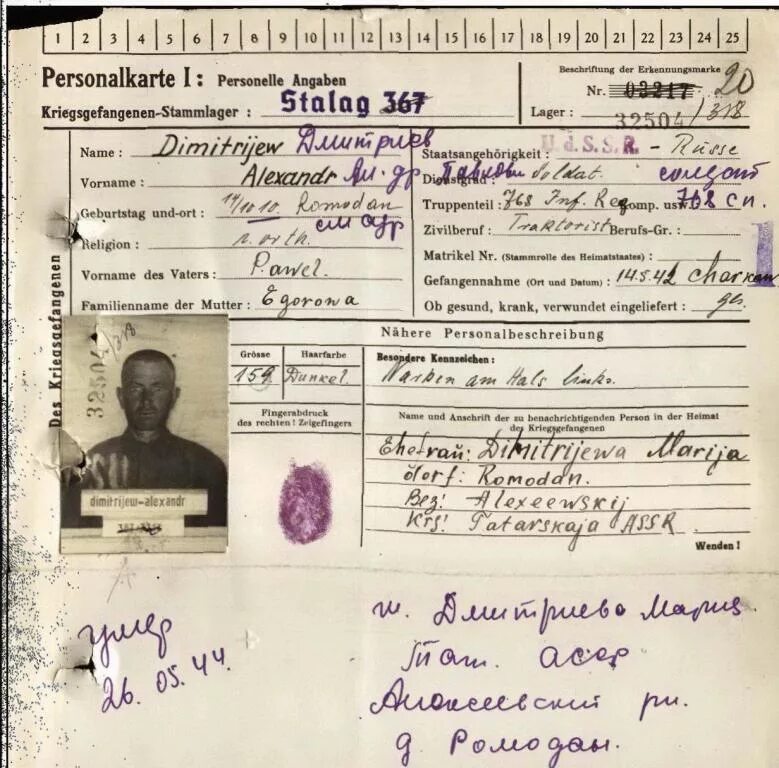 1 2 3 4 5 6 7 8 9 10 11 12 13 14 15 16 17 18 19 20 21 22 23 24 25
Personalkarte I: Personelle Angaben
Kriegsgefangenen-Stammlager: Stalag 367
Beschriftung der Erkennungsmarke
Nr. 03217 20
Lager: 32504/318
Des Kriegsgefangenen
Name: Dimitrijew Дмитриев
Vorname: Alexandr Ал-др Павлови
Geburtstag und-ort: 14/10 10 Romodan
Religion: r. orth.
Vorname des Vaters: Pawel.
Familienname der Mutter: Egorowa
Staatsangehörigkeit: U.d.S.S.R. - Russe
Dienstgrad: Soldat. солдат
Truppenteil: 768 Inf. Reg Komp. usw. 768 сп.
Zivilberuf: Traktorist Berufs-Gr.:
Matrikel Nr. (Stammrolle des Heimatstaates):
Gefangennahme (Ort und Datum): 14.5.42 Charkow
Ob gesund, krank, verwundet eingeliefert:
Nähere Personalbeschreibung
32504/318
dimitrijew-alexandr
Grösse Haarfarbe
159 Dunkel.
Fingerabdruck
des rechten! Zeigefingers
Besondere Kennzeichen:
Narben am Hals links.
Name und Anschrift der zu benachrichtigenden Person in der Heimat
des Kriegsgefangenen
Ehefrau: Dimitrijewa Marija
dorf: Romodan.
Bez: Alexeewskij
Krs: Tatarskaja ASSR
Wenden!
умер
26.05.44.
ж. Дмитриева Мария
Тат. асср
Алексеевский рн.
д. Ромодан.